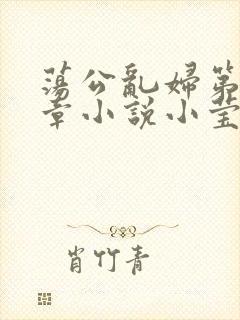 蕩公亂婦第
章小說小莹
肖竹青